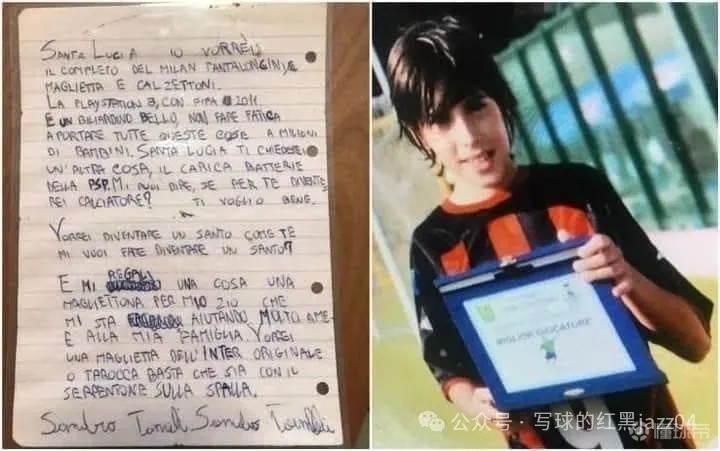 SANTA LUCIA IO VORREI
IL COMPLETO DEL MILAN PANTALONCINI,
MAGLIETTA E CALZETTONI.
LA PLAYSTATION 3, CON FIFA 2011
E UN BILIARDINO BELLO, NON FARE FATICA
A PORTARE TUTTE QUESTE COSE A MILIONI
DI BAMBINI. SANTA LUCIA TI CHIEDEREI
UN'ALTRA COSA, IL CARICA BATTERIE
DELLA PSP. MI PUOI DIRE, SE PER TE DIVENTE
REI CALCIATORE? TI VOGLIO BENE.
VORREI DIVENTARE UN SANTO COME TE
MI VUOI FARE DIVENTARE UN SANTO?
E MI REGALI UNA COSA UNA
MAGLIETTONA PER MIO ZIO CHE
MI STA AIUTANDO MOLTO A ME
E ALLA MIA FAMIGLIA. VORREI
UNA MAGLIETTA DELL'INTER ORIGINALE
O TAROCCA BASTA CHE SIA CON IL
SERPENTONE SULLA SPALLA.
Sandro Tonali Sandro Tonali
MIGLIOR GIOCATORE
公众号 · 写球的红黑jazz04
懂球帝